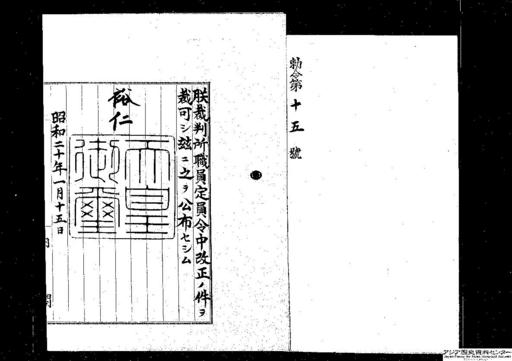 勅令第十五號
朕裁判所職員定員令中改正ノ件ヲ
裁可シ玆ニ之ヲ公布セシム
裕仁
天皇御璽
昭和二十年一月十五日
内閣
アジア歴史資料センター